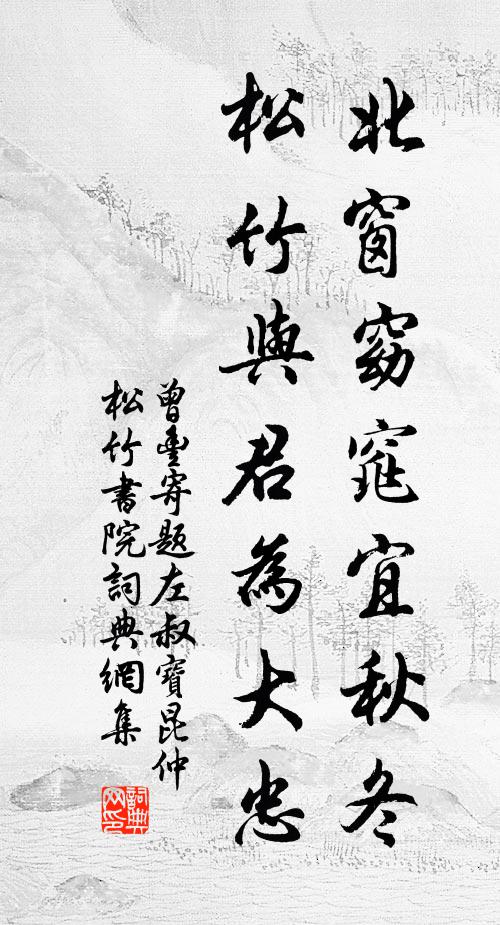 北窗窈窕宜秋冬
松竹與君為大忠
曾豐寄題左叔寶昆仲
松竹書院詞典網集
詞典网印